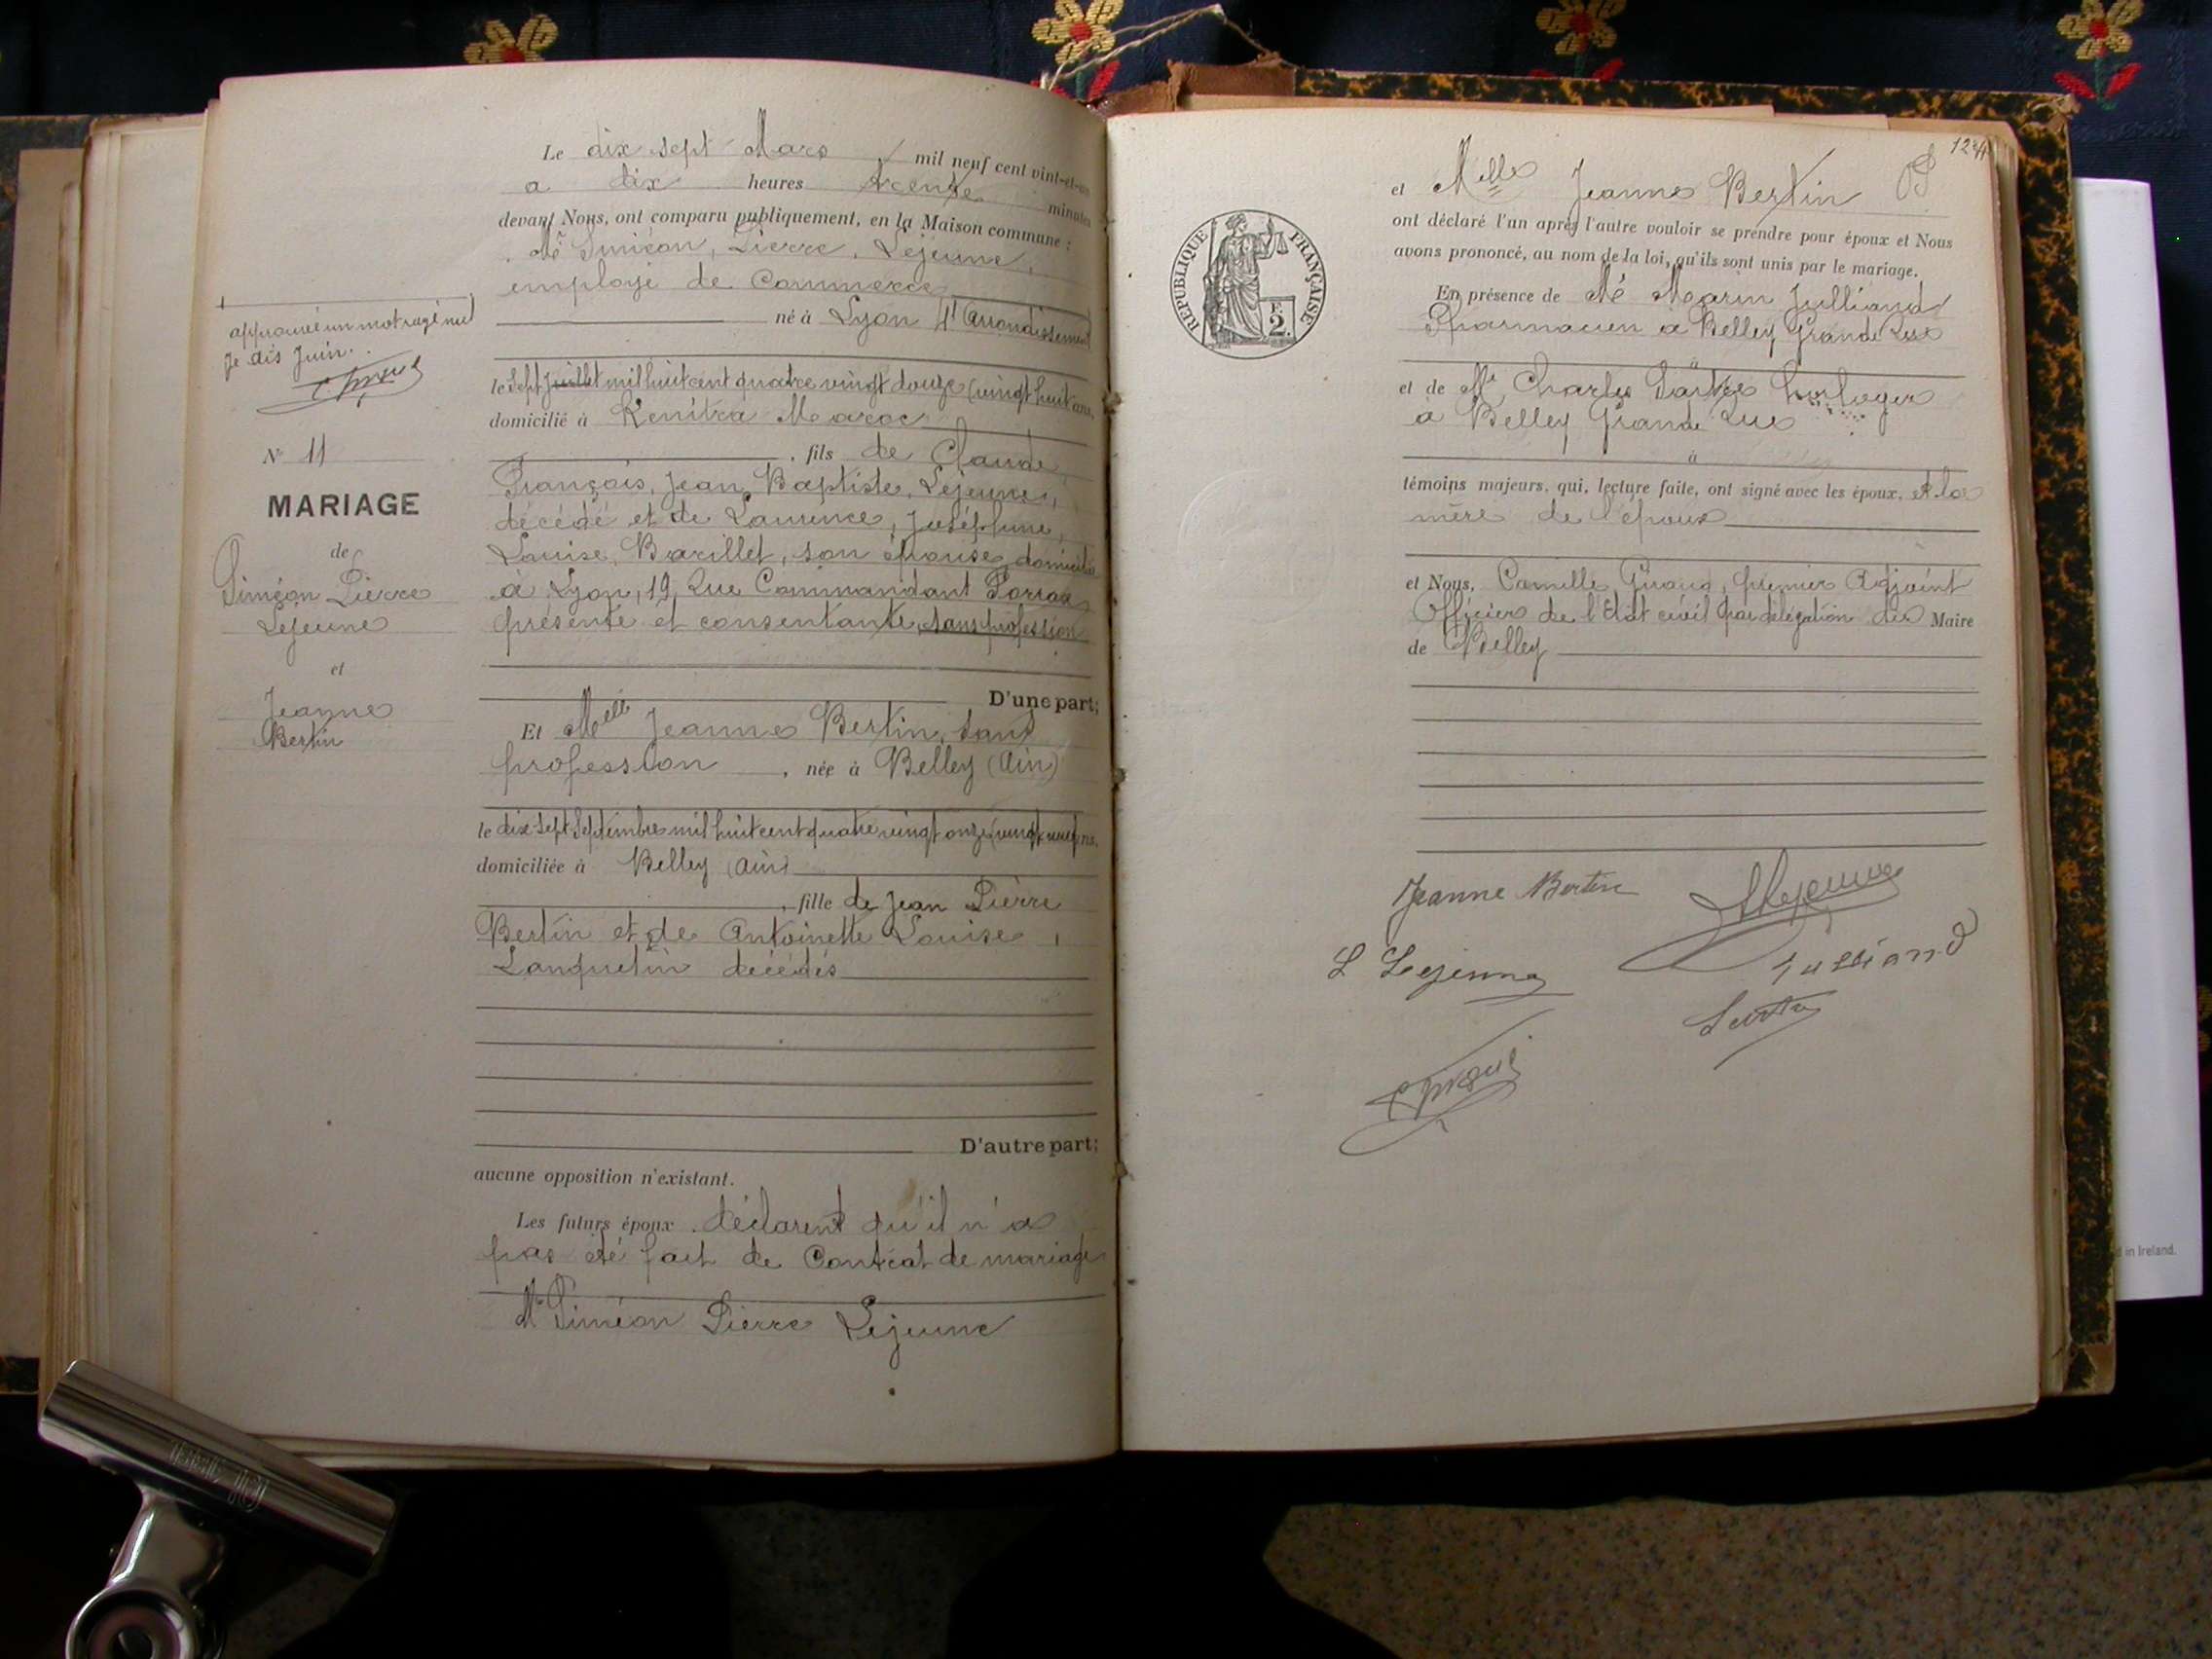 Le dix sept Mars mil neuf cent vint-et-un
a dix heures trente minutes
devant Nous, ont comparu publiquement, en la Maison commune :
Mr Siméon, Pierre, Lejeune,
employé de Commerce
né à Lyon 4e Arrondissement
le Sept juillet mil huit cent quatre vingt douze (vingt huit ans)
domicilié à Kenitra Maroc
, fils de Claude
François, Jean, Baptiste, Lejeune,
décédé et de Laurence, Joséphine,
Louise, Barillet, son épouse, domiciliée
à Lyon, 19, Rue Commandant
présente et consentante, sans profession
D'une part;
Et Melle Jeanne Bertin, sans
profession , née à Belley (Ain)
le dix-sept Septembre mil huit cent quatre vingt onze (vingt neuf ans.
domiciliée à Belley (Ain)
, fille de Jean Pierre
Bertin et de Antoinette Louise,
Lanquetin décédés
D'autre part;
aucune opposition n'existant.
Les futurs époux déclarent qu'il n'a
pas été fait de Contrat de mariage
Mr Siméon Pierre Lejeune
approuvé un mot rayé nul
je dis Juin.
No 11
MARIAGE
de
Siméon Pierre
Lejeune
et
Jeanne
Bertin
et Melle Jeanne Bertin
ont déclaré l'un après l'autre vouloir se prendre pour époux et Nous
avons prononcé, au nom de la loi, qu'ils sont unis par le mariage.
En présence de Mr Marin Julliand
Pharmacien à Belley Grande Rue
à
et de Mr Charles horloger
à Belley Grande Rue
à
témoins majeurs, qui, lecture faite, ont signé avec les époux, et la
mère de l'époux
et Nous, Camille Giraud, premier Adjoint
Officier de l'Etat civil par délégation du Maire
de Belley
Jeanne Bertin
SLejeune
L Lejeune
Julliand
RÉPUBLIQUE FRANÇAISE
F.
2.
d in Ireland.